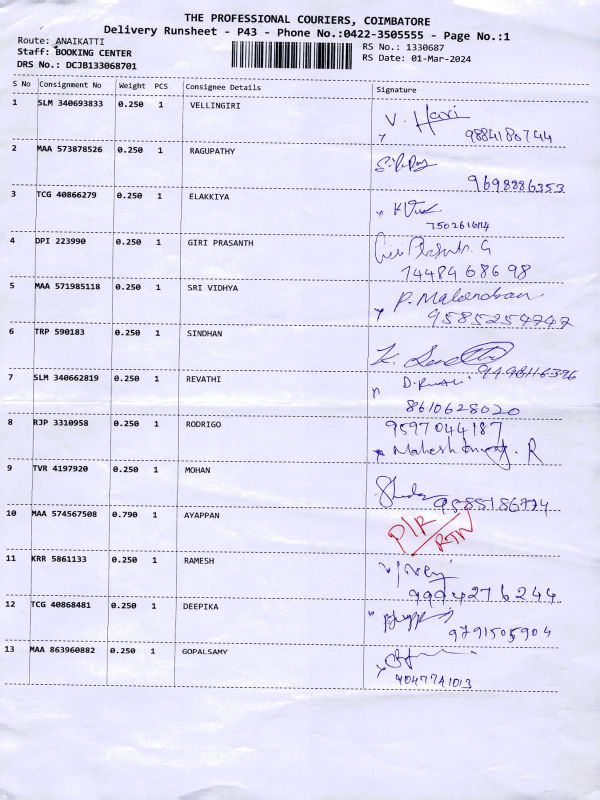 THE PROFESSIONAL COURIERS, COIMBATORE
Delivery Runsheet - P43 - Phone No.:0422-3505555 - Page No.:1
Route: ANAIKATTI
RS No.: 1330687
Staff: BOOKING CENTER
RS Date: 01-Mar-2024
DRS No.: DCJB133068701
S No Consignment No Weight PCS Consignee Details Signature
1 SLM 340693833 0.250 1 VELLINGIRI
V. Hari
9884180744
2 MAA 573878526 0.250 1 RAGUPATHY
9698886353
3 TCG 40866279 0.250 1 ELAKKIYA
4 DPI 223990 0.250 1 GIRI PRASANTH
Giri Prasanth. G
7448468698
5 MAA 571985118 0.250 1 SRI VIDHYA
P. Mahendran
9585254747
6 TRP 590183 0.250 1 SINDHAN
7 SLM 340662819 0.250 1 REVATHI
8610628020
8 RJP 3310958 0.250 1 RODRIGO
9597044187
R
9 TVR 4197920 0.250 1 MOHAN
10 MAA 574567508 0.790 1 AYAPPAN
P/R
RTN
11 KRR 5861133 0.250 1 RAMESH
9994276244
12 TCG 40868481 0.250 1 DEEPIKA
9791505904
13 MAA 863960882 0.250 1 GOPALSAMY